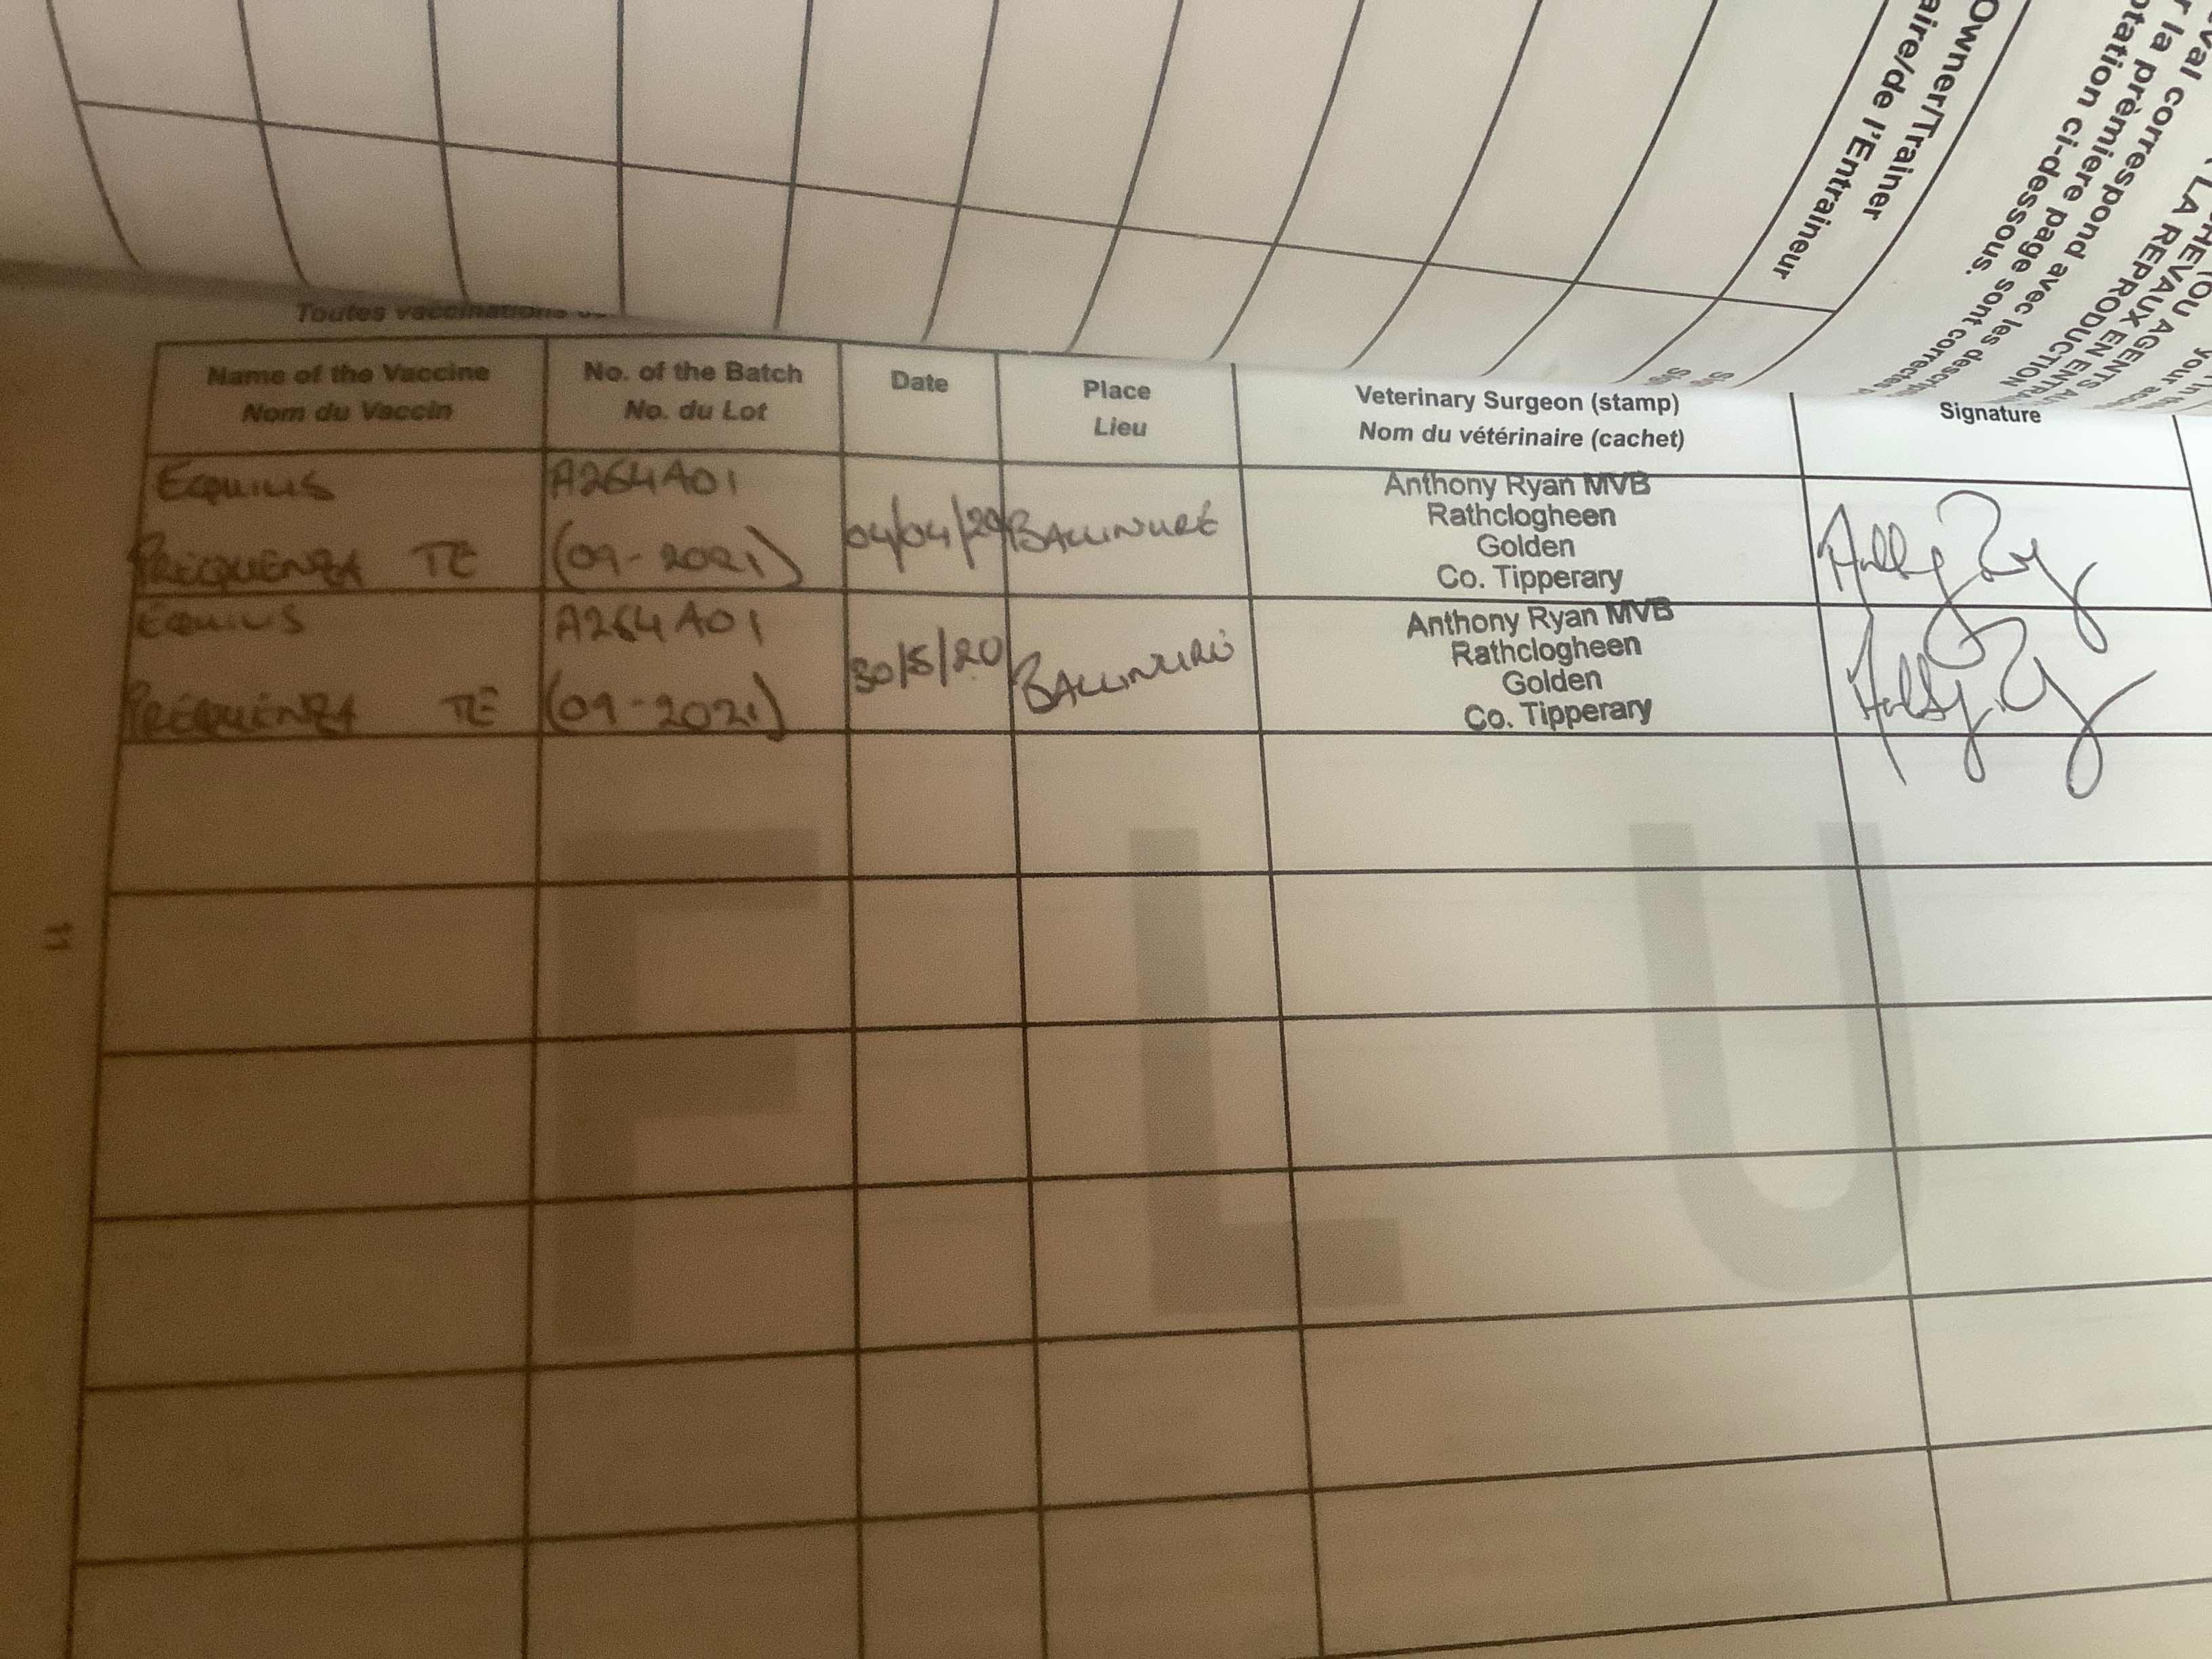 Owner/Trainer
aire/de l'Entraineur
val correspond avec les descrip
r la prèmiere page sont correctes
ptation ci-desssous.
LA REPRODUCTION
HEVAUX EN ENTR
OU AGENTS AU
Toutes vaccinations
Name of the Vaccine
Nom du Vaccin
No. of the Batch
No. du Lot
Date
Place
Lieu
Veterinary Surgeon (stamp)
Nom du vétérinaire (cachet)
Signature
EQUILIS
PREQUENZA TE
A264A01
(09-2021)
04/04/20
BALLINURE
Anthony Ryan MVB
Rathclogheen
Golden
Co. Tipperary
EQUILIS
PREQUENZA TE
A264A01
(09-2021)
30/5/20
BALLINURE
Anthony Ryan MVB
Rathclogheen
Golden
Co. Tipperary
FLU
11